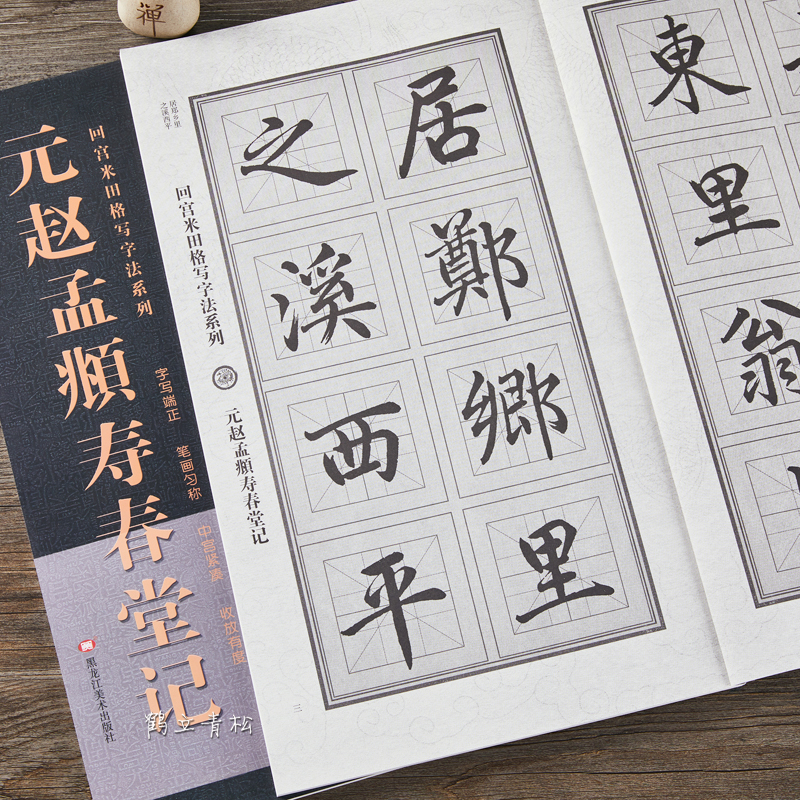 禅
元赵孟頫寿春堂记
回宫米田格写字法系列
字写端正
笔画匀称
中宫紧凑
收放有度
黑龙江美术出版社
鹤立青松
居郑乡里
之溪西平
回宫米田格写字法系列
元赵孟頫寿春堂记
居鄭鄉里
之溪西平
三
東里翁